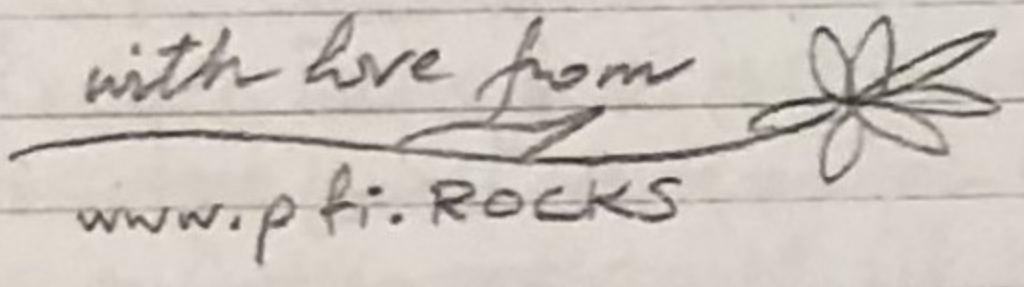 with love from
www.pfi.ROCKS